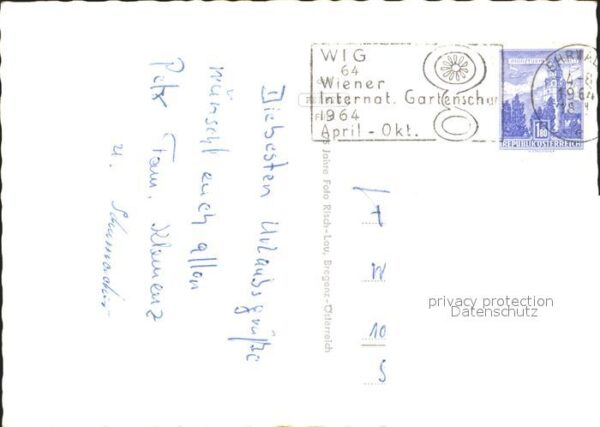 WIG
64
Wiener
Internat. Gartenschau
1964
April - Okt.
EHRWALD
1964
1.80
REPUBLIK ÖSTERREICH
Jahre Foto Risch-Lau, Bregenz-Österreich
Liebesten Urlaubsgrüße
wünscht euch allen
Fam. Klemenz
u. Schumacher
privacy protection
Datenschutz